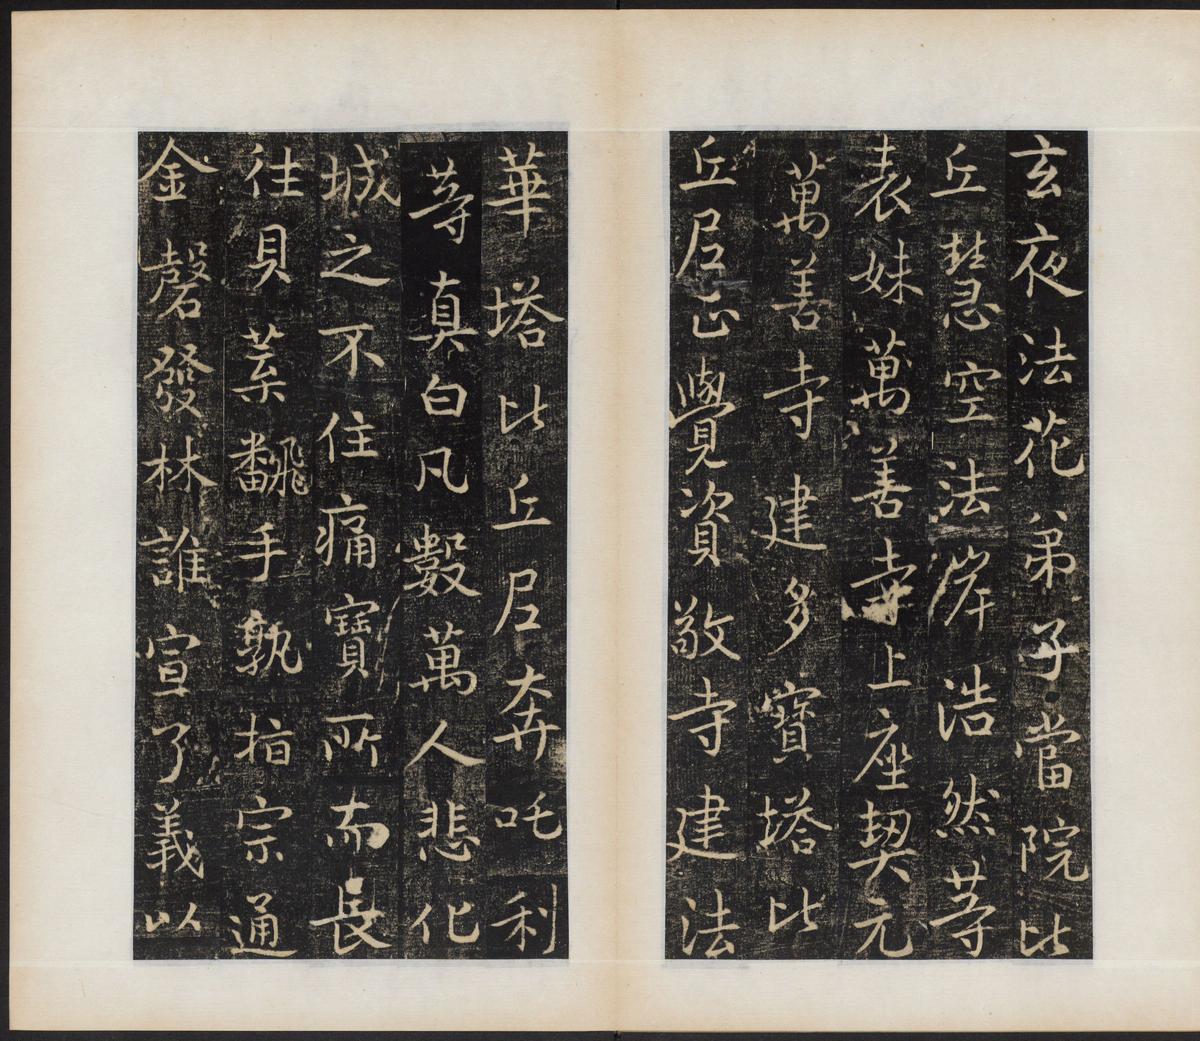 玄夜法花弟子當院比
丘慧忍空法岸浩然等
表妹萬善寺上座契元
萬善寺建多寶塔比
丘尼正覺資敬寺建法
華塔比丘尼奔吒利
等真白凡數萬人悲化
城之不住痛寶所而長
往貝葉翻手孰指宗通
金磬發林誰宣了義以